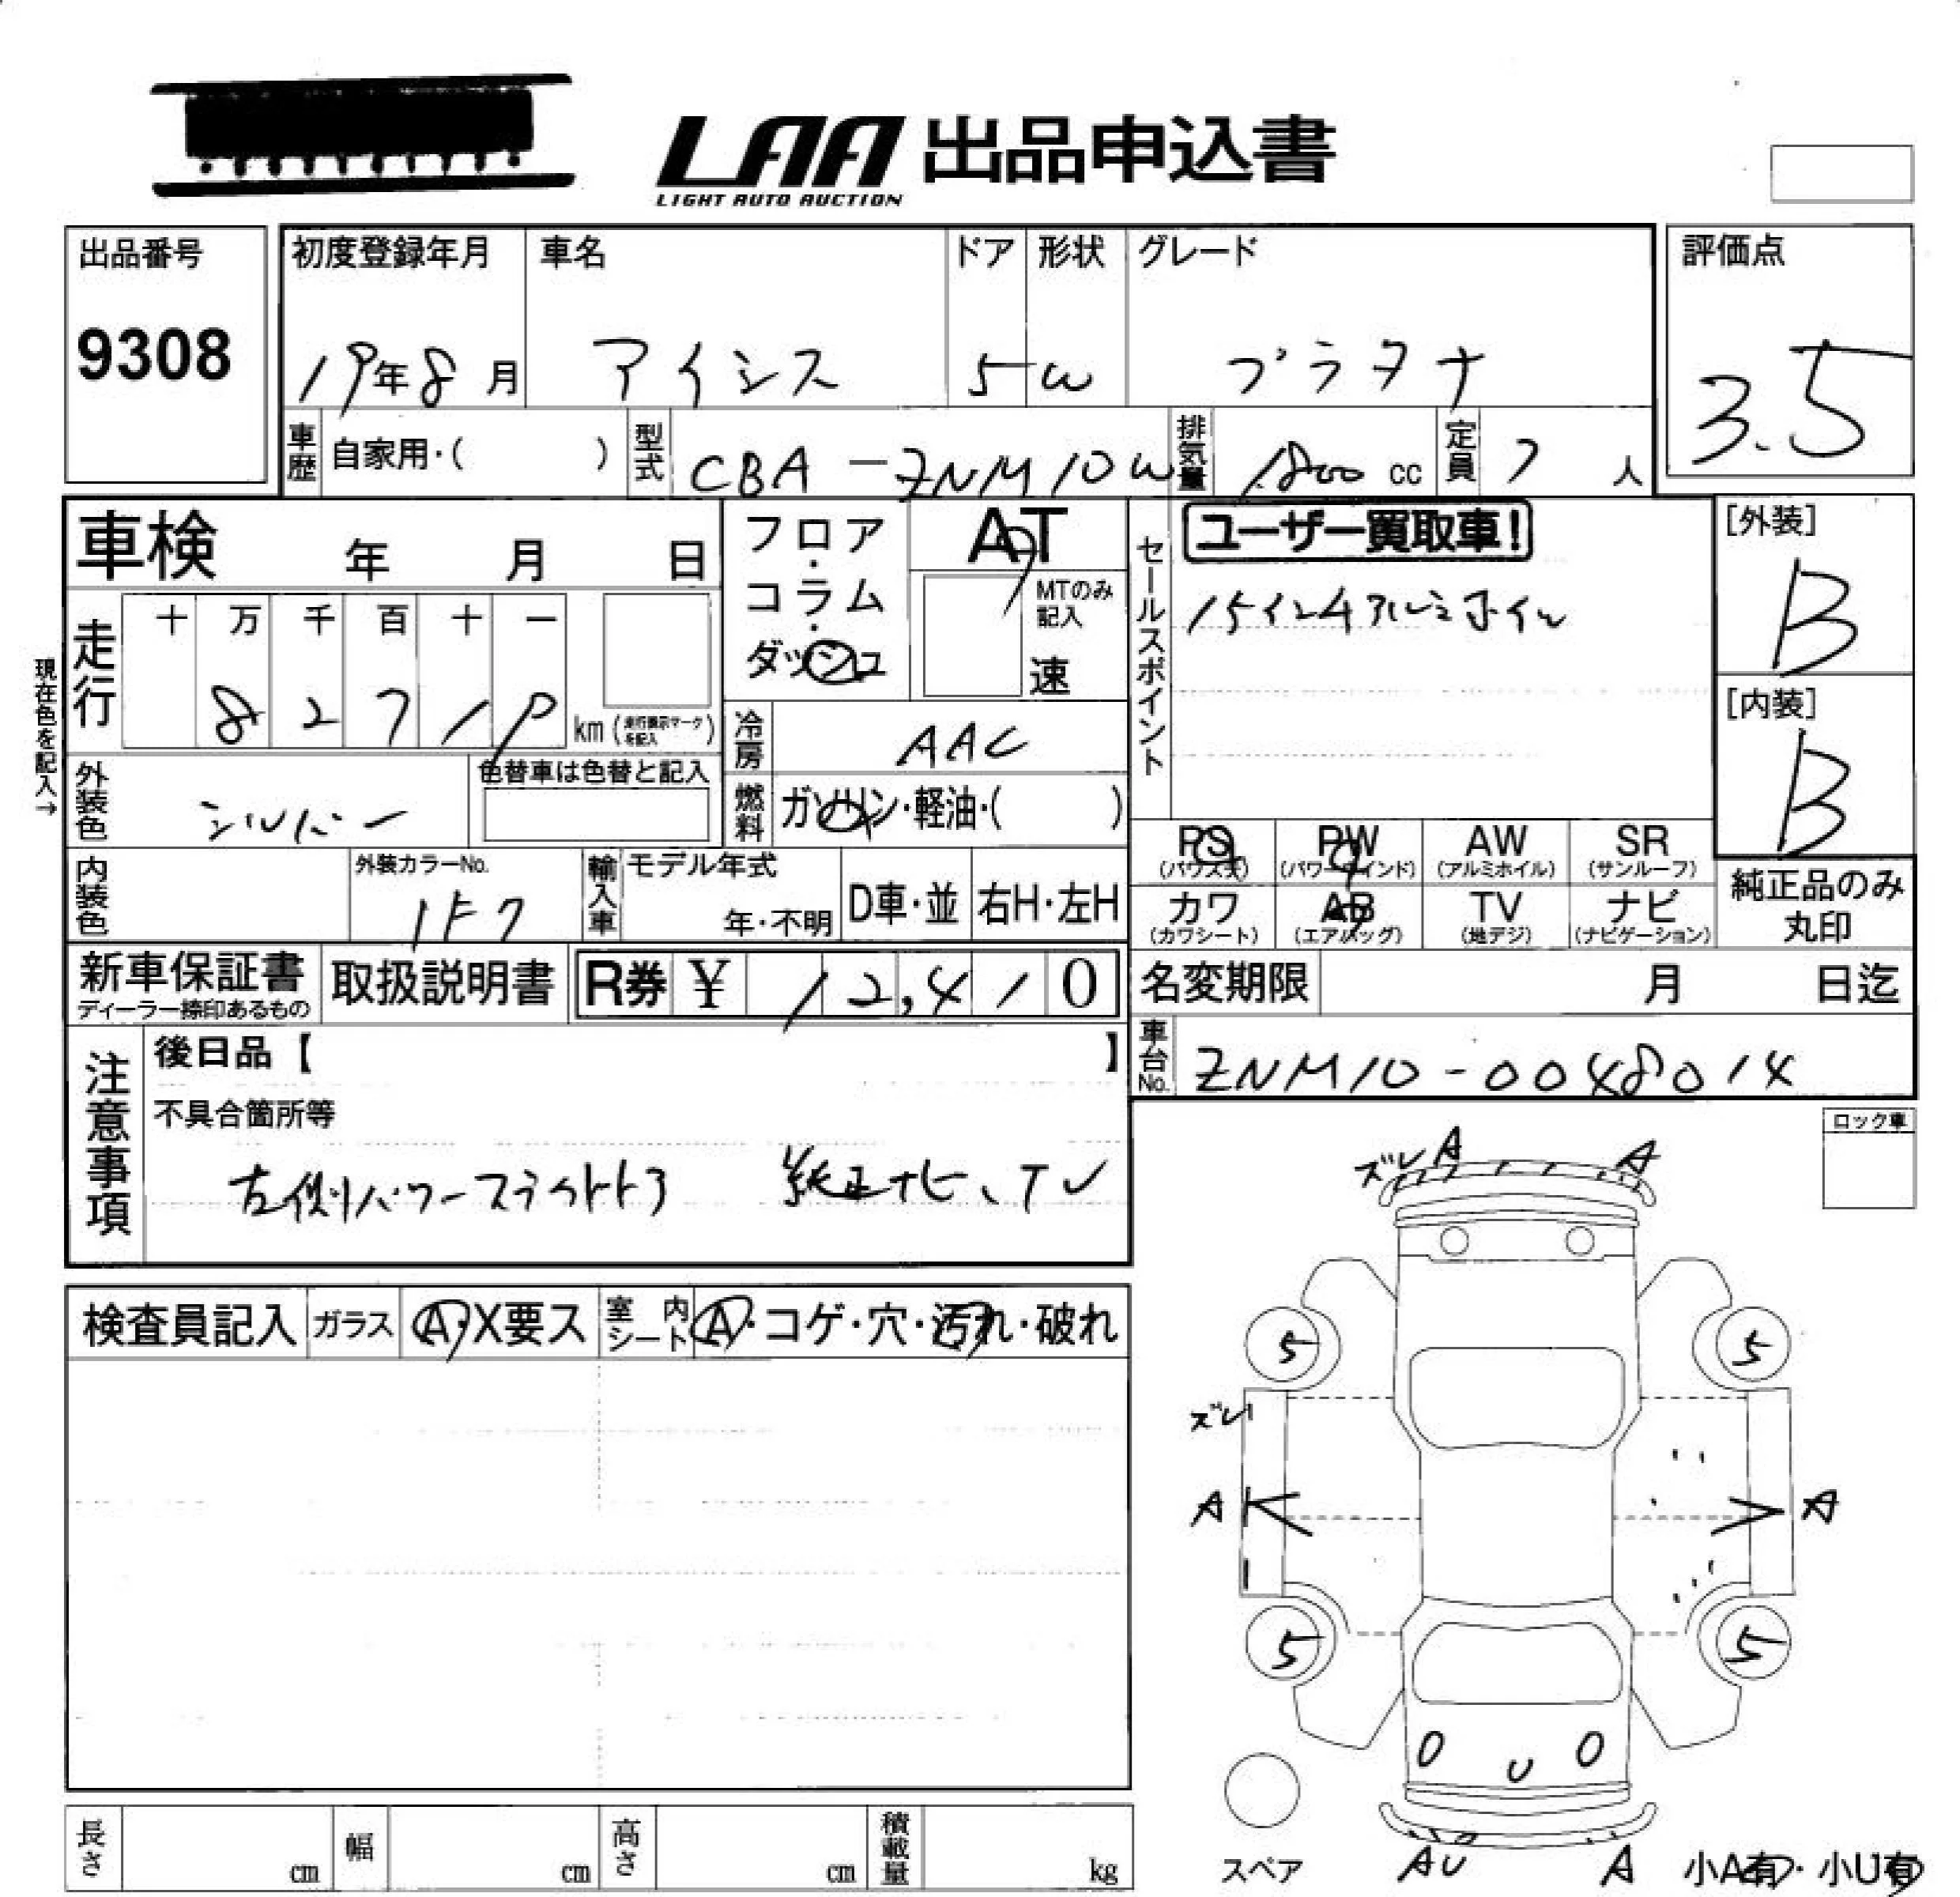 LAA 出品申込書
LIGHT AUTO AUCTION
出品番号
9308
初度登録年月 車名 ドア 形状 グレード
19年8月 アイシス 5 W プラタナ
評価点
3.5
車歴 自家用・( ) 型式 CBA-ZNM10W 排気量 1800 cc 定員 7人
車検 年 月 日
フロア・コラム・ダッシュ
AT
MTのみ記入
速
セールスポイント
ユーザー買取車!
15インチアルミホイル
[外装]
B
[内装]
B
走行 十 万 千 百 十 一
8 2 7 1 9 km (走行表示マークを記入)
現在色を記入→
冷房 AAC
外装色 シルバー
色替車は色替と記入
燃料 ガソリン・軽油・( )
PS PW AW SR
(パワステ) (パワーウインド) (アルミホイル) (サンルーフ)
カワ AB TV ナビ
(カワシート) (エアバッグ) (地デジ) (ナビゲーション)
純正品のみ丸印
内装色
外装カラーNo.
1F7
輸入車 モデル年式
年・不明 D車・並 右H・左H
新車保証書
ディーラー捺印あるもの
取扱説明書 R券 ¥ 12,410
名変期限 月 日迄
車台No. ZNM10-0048014
注意事項
後日品【 】
不具合箇所等
左側パワースライドドア 純正ナビ、TV
ロック車
検査員記入 ガラス A・X要ス 室内シート A・コゲ・穴・汚れ・破れ
ズレ A A
5 5
ズレ
A A
5 5
U
AU A
スペア
小A有・小U有
長さ cm 幅 cm 高さ cm 積載量 kg